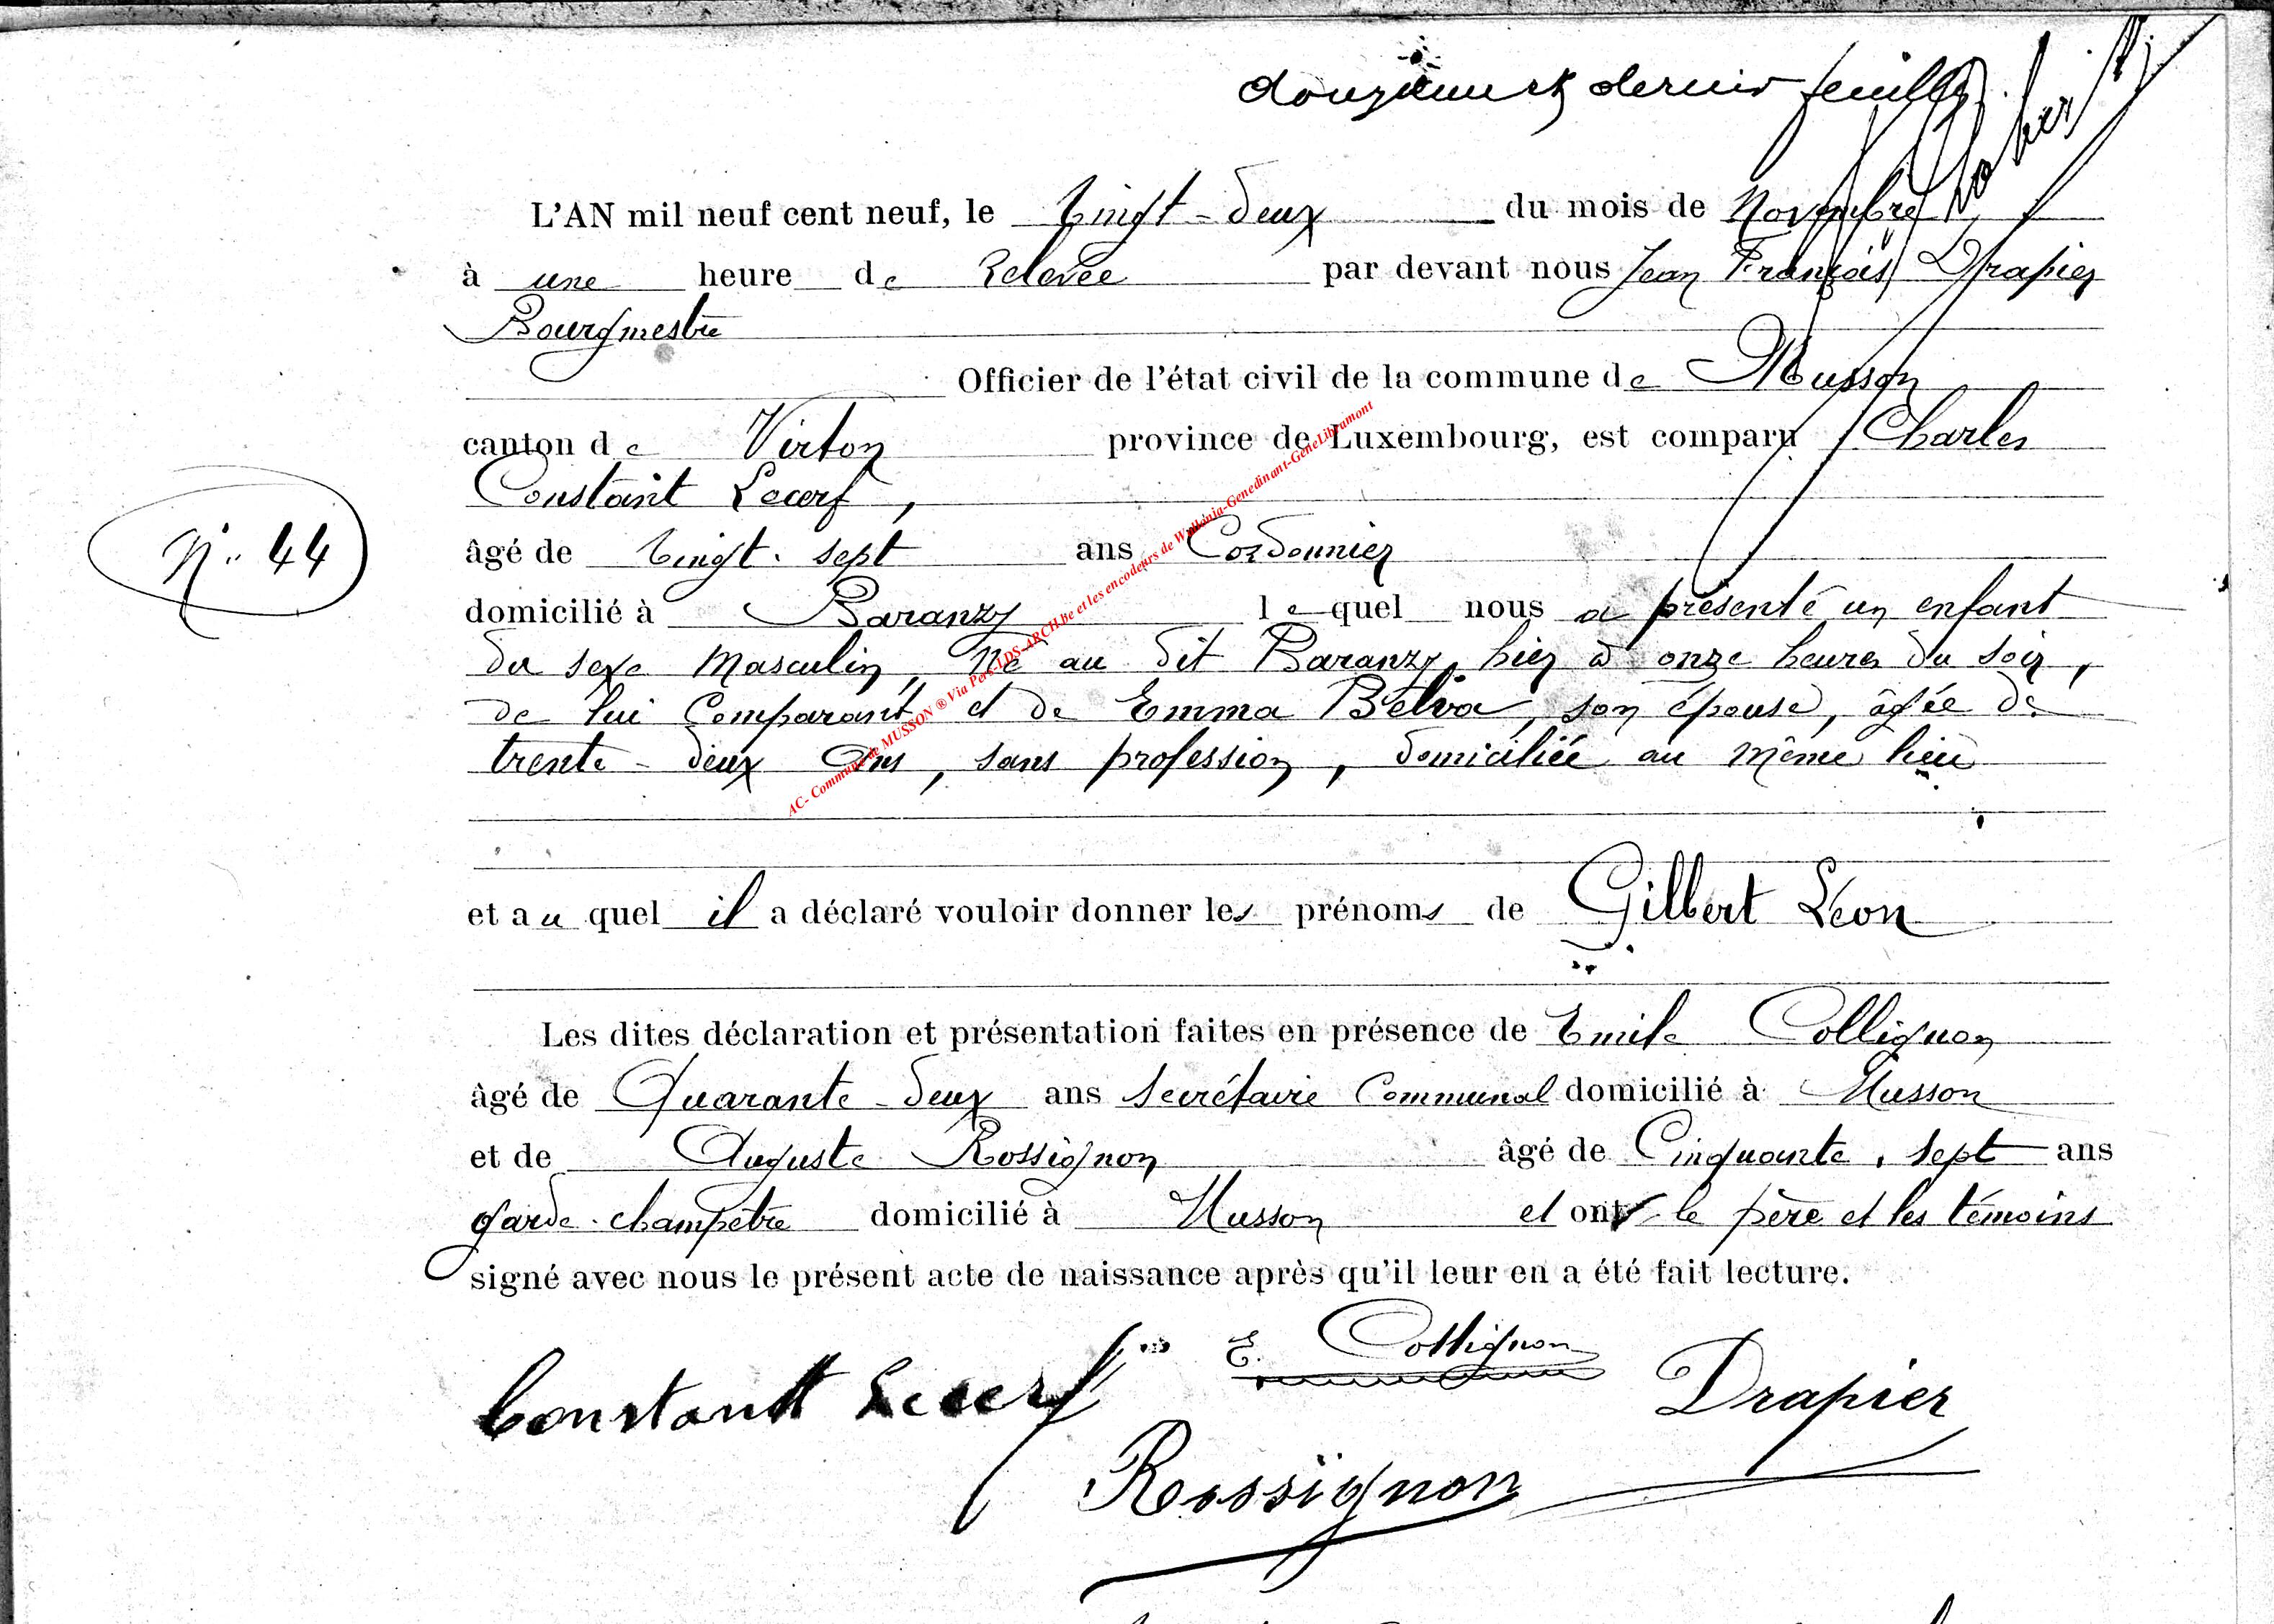 douzième et dernier feuillet.
L'AN mil neuf cent neuf, le Vingt-deux du mois de Novembre
à une heure de Relevée par devant nous Jean François Drapier
Bourgmestre
Officier de l'état civil de la commune de Musson
canton de Virton province de Luxembourg, est comparu Charles
Constant Lecerf,
N° 44
âgé de Vingt-sept ans Cordonnier
domicilié à Baranzy lequel nous a présenté un enfant
du sexe Masculin, Né au dit Baranzy, hier à onze heures du soir,
de lui Comparant et de Emma Belva, son épouse, âgée de
trente-deux Ans, sans profession, domiciliée au même lieu
et auquel il a déclaré vouloir donner les prénoms de Gilbert Léon
Les dites déclaration et présentation faites en présence de Emile Collignon
âgé de Quarante-deux ans Secrétaire Communal domicilié à Musson
et de Auguste Rossignon âgé de Cinquante-sept ans
garde-champêtre domicilié à Musson et ont le père et les témoins
signé avec nous le présent acte de naissance après qu'il leur en a été fait lecture.
Constant Lecerf E. Collignon Drapier
Rossignon
AC- Commune de MUSSON ® Via Pers-LDS-ARCH.be et les encodeurs de Wallonia-Genedinant-GeneLibramont